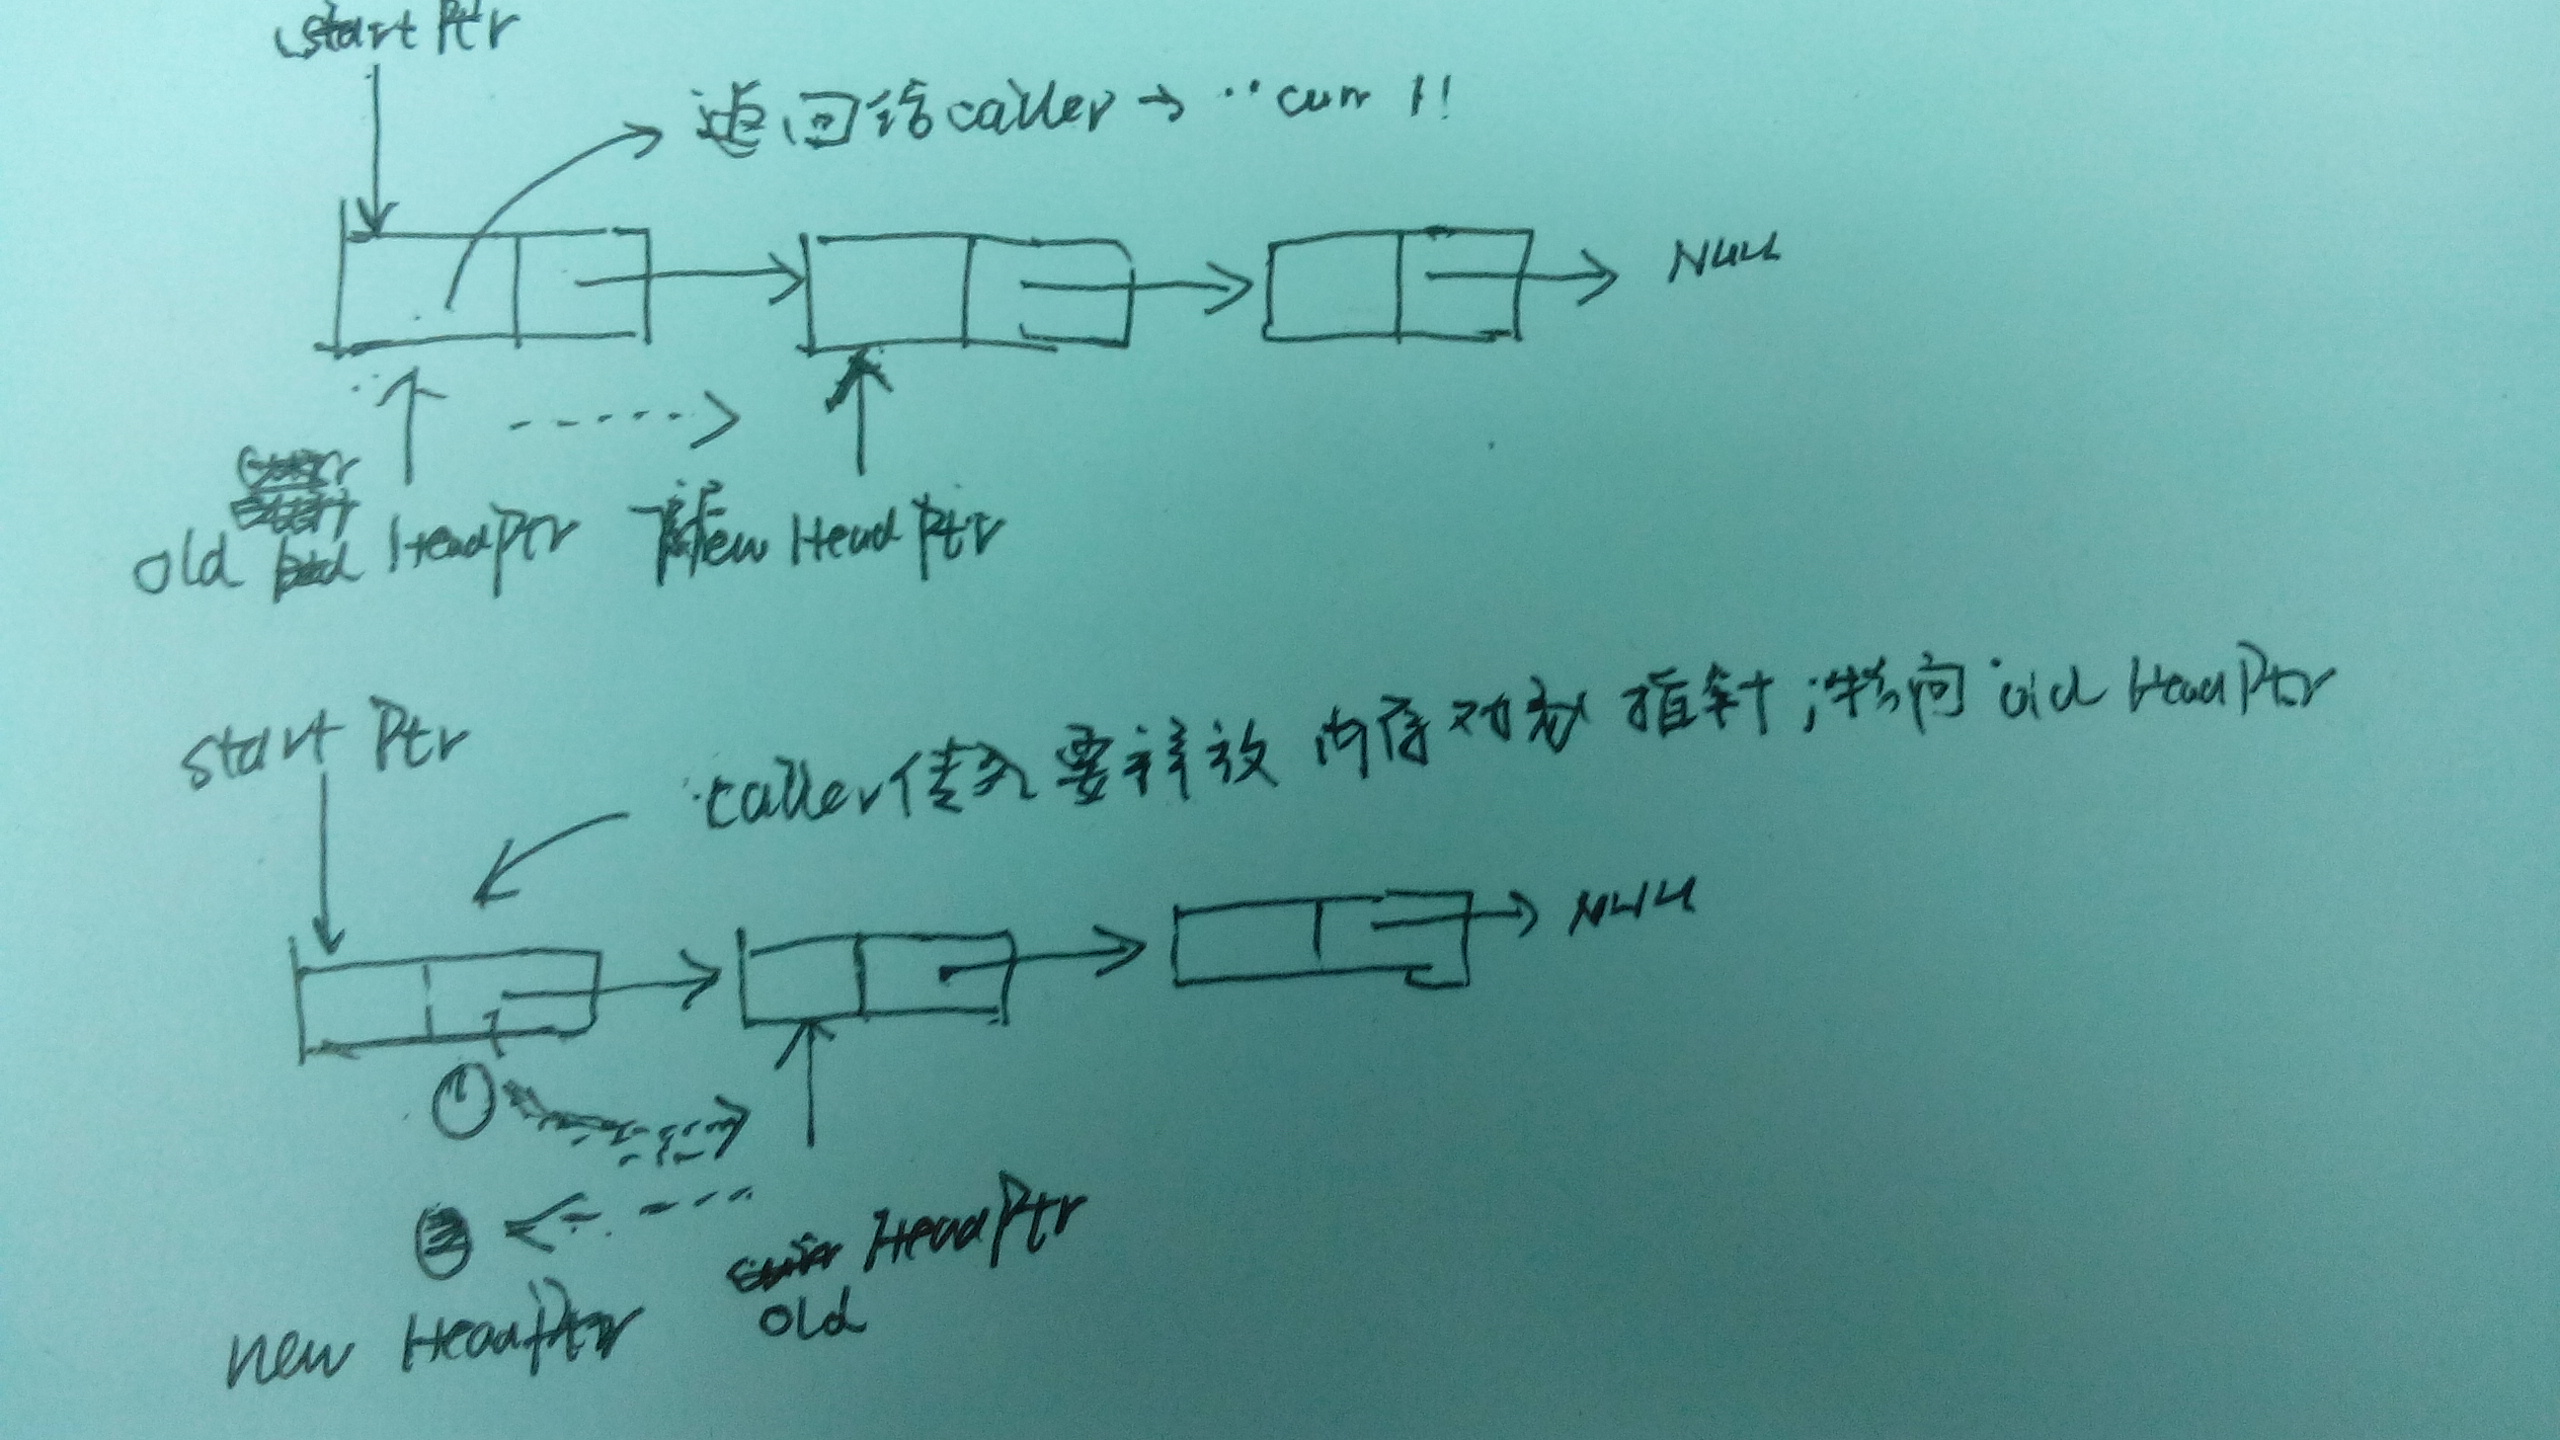 start Ptr
返回给caller → curr !!
NULL
old HeadPtr
new HeadPtr
start Ptr
caller传入要释放内存对象指针;指向old HeadPtr
NULL
HeadPtr
old
new HeadPtr